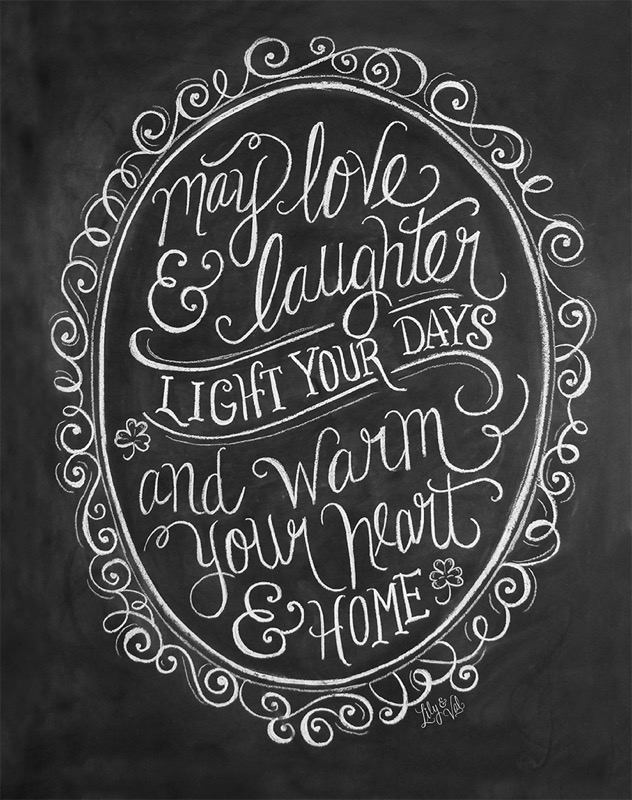 may love
& laughter
LIGHT YOUR DAYS
and warm
your heart
& HOME
Lily & Val